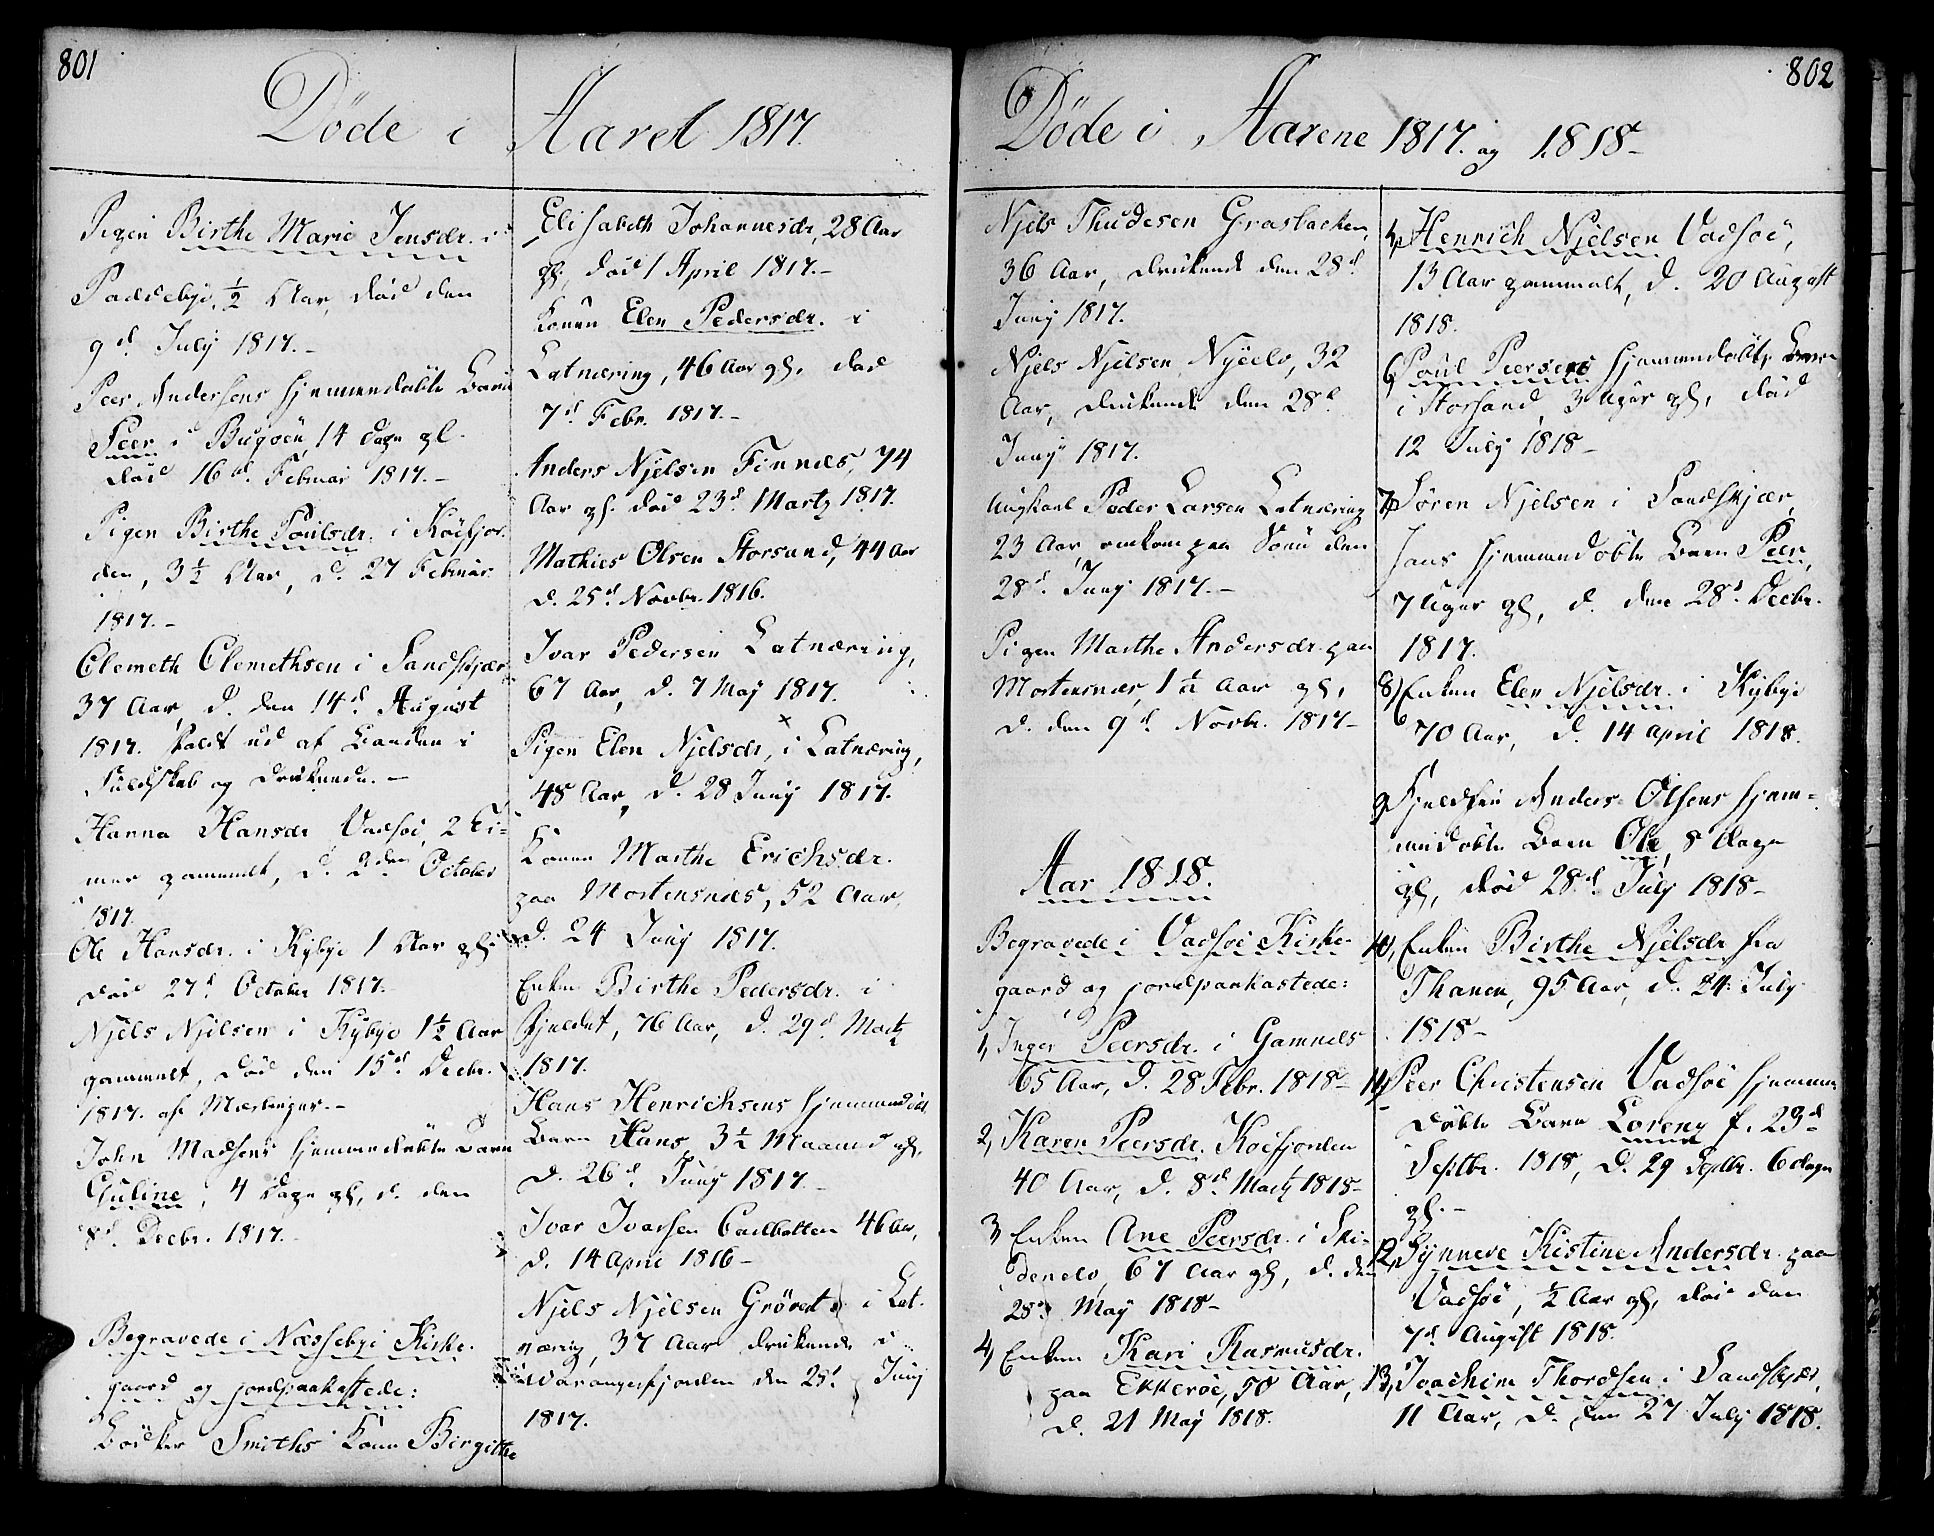 801
Døde i Aaret 1817.
Pigen Birthe Marie Jensdr. i
Paddebye, ½ Aar, død den
9d July 1817.–
Peer Andersens hjemmedøbte Barn
Peer i Bugøen, 14 Dage gl.
død 16d. Februar 1817.–
Pigen Birthe Poulsdr. i Kiøefjor-
den, 3½ Aar, d. 27 Februar
1817.–
Clemeth Clemethsen i Sandskjær
37 Aar, d. den 14d. August
1817. faldt ud af Baaden i
Fuldskab og druknede.–
Hanna Hansdr Vadsøe, 2 Ti-
mer gammelt, d. 2den October
1817.
Ole Hansdr. i Kybye 1 Aar gl.
død 27d. October 1817.
Njels Njelsen i Kybye 1½ Aar
gammelt, død den 15d. Decbr.
1817. af Mæslinger.–
John Madsens hjemmedøbte Barn
Guline, 4 Dage gl, d. den
8d. Decbr. 1817.
Begravede i Næssebye Kirke-
gaard og jordpaakastede:
Bødker Smiths Kone Birgitthe
Elisabeth Johannesdr, 28 Aar
gl, død 1 April 1817.–
Konen Elen Pedersdr. i
Latnæring, 46 Aar gl. død
7d Febr. 1817.–
Anders Njelsen Finnes, 74
Aar gl. død 23d. Martz 1817.
Mathies Olsen Storsand, 44 Aar
d. 25d. Novbr. 1816.
Ivar Pedersen Latnæring,
67 Aar, d. 7 May 1817.
Pigen Elen Njelsdr, i Latnæring,
48 Aar, d. 28 Juny 1817.
Konen Marthe Erichsdr.
paa Mortensnæs, 52 Aar,
d. 24 Juny 1817.
Enken Birthe Pedersdr. i
Fjeldet, 76 Aar, d. 29d Martz
1817.
Hans Henrichsens hjemmedøbt
Barn Hans, 3½ Maaned gl,
d. 26d. Juny 1817.–
Ivar Ivarsen Carlbotten 46 Aar,
d. 14 April 1816–
Njels Njelsen i Lat-
næring, 37 Aar druknede i
Warangerfjorden den 28d Juny
1817.
802
Døde i Aarene 1817. og 1818–
Njels Thudesen Grasbacken,
36 Aar, druknede den 28d.
Juny 1817.
Njels Njelsen Nyeelv, 32
Aar, druknede den 28d.
Juny 1817.
Ungkarl Peder Larsen Latnæring
23 Aar, omkom paa Søen den
28d. Juny 1817.–
Pigen Marthe Andersdr. paa
Mortensnæs, 1½ Aar gl,
d. den 9d. Novbr. 1817–
Aar 1818.
Begravede i Vadsøe Kirke-
gaard og jordpaakastede:
1, Inger Peersdr. i Gamnes
65 Aar, d. 28 Febr. 1818–
2, Karen Peersdr. Kiøefjorden
40 Aar, d. 8d. Martz 1818–
3 Enken Ane Peersdr. i Ski-
denelv, 67 Aar gl, d. den
28d. May 1818–
4, Enken Kari Rasmusdr.
paa Ekkerøe, 50 Aar,
d. 21 May 1818.
5, Henrich Njelsen Vadsøe,
13 Aar gammelt, d. 20 August
1818.
6, Poul Peersens hjemmedøbte Barn
i Storsand 3 Uger gl, død
12 July 1818–
7, Søren Njelsen i Sandskjær,
hans hjemmedøbte Barn Peer,
7 Uger gl, d. den 28d. Decbr.
1817.
8, Enken Elen Njelsdr. i Kybye
70 Aar, d. 14 April 1818.
9, Anders Olsens hjem-
medøbte Barn Ole, 8 Dage
gl, død 28d. July 1818–
10, Enken Birthe Njelsdr fra
Thanen, 95 Aar, d. 24 July
1818–
11, Peer Christensen Vadsøe hjemme
døbte Barn Lorenz f. 23d
Septbr. 1818, d. 29 Septbr. 6 dage
gl.–
12, Synneve Kistine Andersdr. paa
Vadsøe, ½ Aar gl, død den
7d. August 1818.
13, Joachim Thordsen i Sandskjær,
11 Aar, d. den 27 July 1818.